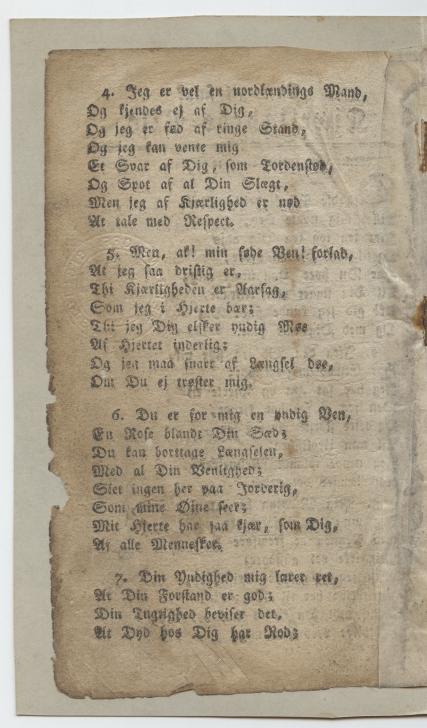 4. Jeg er vel en nordlændings Mand,
Og kjendes ej af Dig,
Og jeg er fød af ringe Stand,
Og jeg kan vente mig
Et Svar af Dig, som Tordenstød,
Og Spot af al Din Slægt,
Men jeg af Kjærlighed er nød
At tale med Respect.
5. Men, ak! min søde Ven! forlad,
At jeg saa dristig er,
Thi Kjærligheden er Aarsag,
Som jeg i Hjerte bær;
Thi jeg Dig elsker yndig Møe
Af Hjertet inderlig;
Og jeg maa snart af Længsel døe,
Om Du ej trøster mig.
6. Du er for mig en yndig Ven,
En Rose blandt Din Sæd;
Du kan borttage Længselen,
Med al Din Venlighed;
Slet ingen her paa Jorderig,
Som mine Øine seer;
Mit Hjerte har saa kjær, som Dig,
Af alle Mennesker.
7. Din Yndighed mig lærer ret,
At Din Forstand er god;
Din Tugtighed beviser det,
At Dyd hos Dig har Rod;